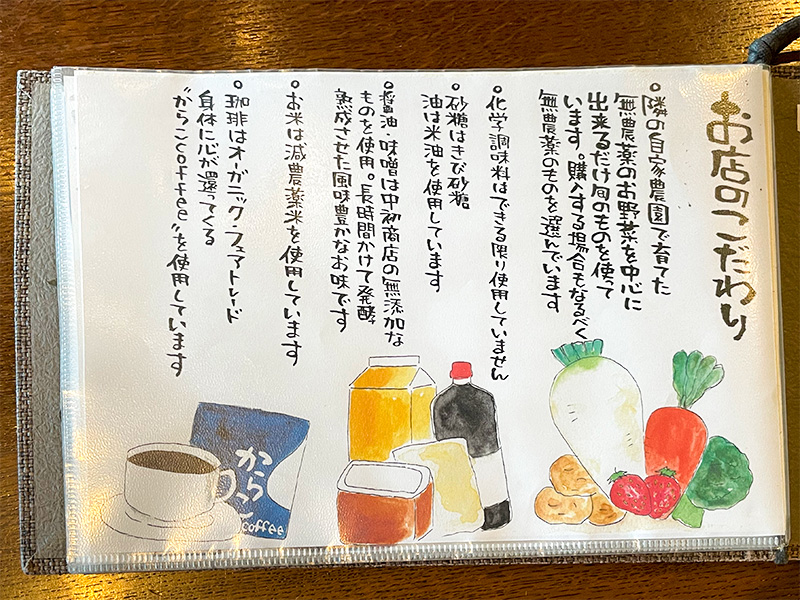 お店のこだわり
○隣の自家農園で育てた
無農薬のお野菜を中心に
出来るだけ旬のものを使って
います。購入する場合もなるべく
無農薬のものを選んでいます
○化学調味料はできる限り使用していません
○砂糖はきび砂糖
油は米油を使用しています
○醤油・味噌は中初商店の無添加な
ものを使用。長時間かけて発酵
熟成させた風味豊かなお味です
○お米は減農薬米を使用しています
○珈琲はオーガニック・フェアトレード
身体に心が還ってくる
"からこcoffee"を使用しています
からこ
coffee